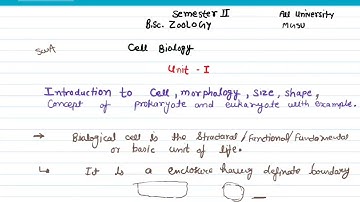 Semester II
B.Sc. ZOOLOGY
All University
MGSU
Cell Biology
Unit - I
Introduction to Cell, morphology, size, shape,
Concept of prokaryote and eukaryote with example.
→ Biological cell is the Structural/Functional/Fundamental
or basic unit of life.
↳ It is a enclosure having definate boundary